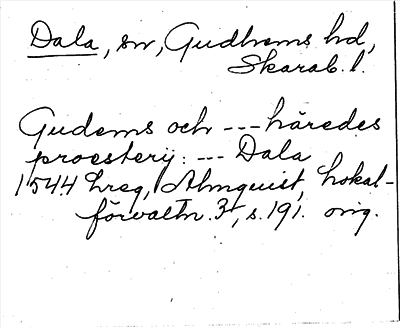 Dala, sn, Gudhems hd,
Skarab. l.
Gudems och --- häredes
proesterij: --- Dala
1544 hreg, Almquist, Lokal-
förvaltn. 3¹, s. 191. orig.